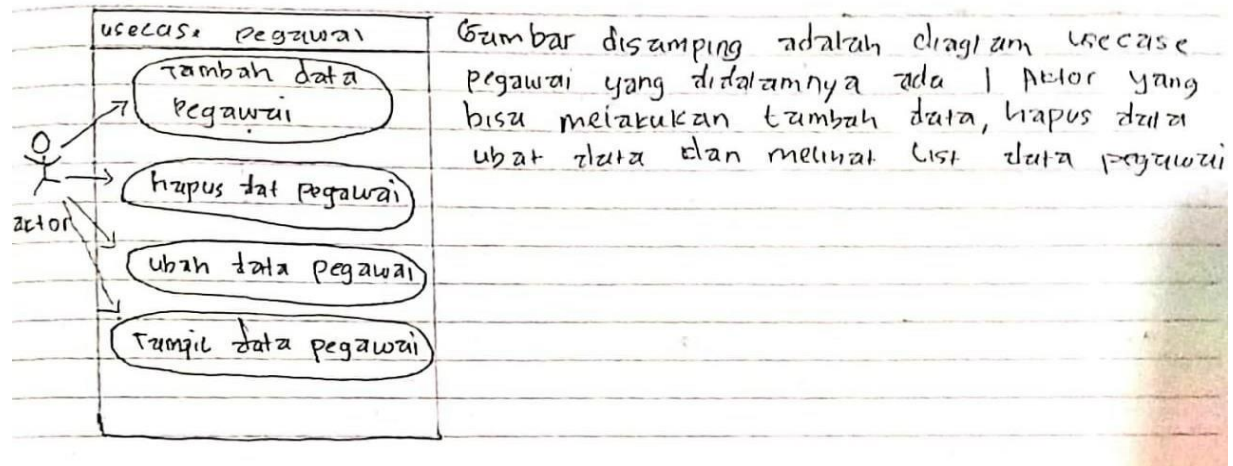 usecase pegawai
Tambah data
Pegawai
hapus dat pegawai
actor
ubah data pegawai
Tampil data pegawai
Gambar disamping adalah diagram usecase
pegawai yang didalamnya ada 1 Aktor yang
bisa melakukan tambah data, hapus data
ubah data dan melihat list data pegawai